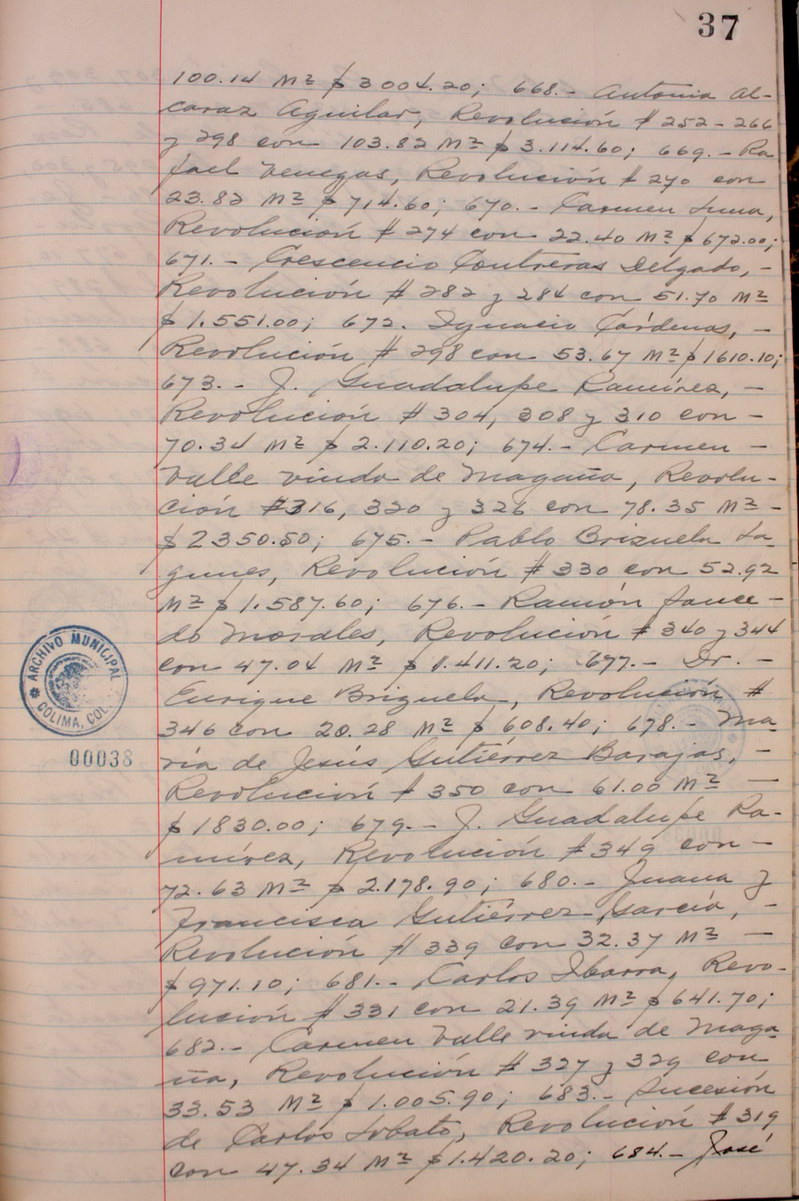 37
100.14 M² $3004.20; 668.- Antonia Al-
caraz Aguilar, Revolución # 252-266
y 298 con 103.82 M² $3.114.60; 669.- Ra
fael Venegas, Revolución # 270 con
23.82 M² $714.60; 670.- Carmen Luna,
Revolución # 274 con 22.40 M² $672.00;
671.- Crescencio Contreras Delgado, -
Revolución # 282 y 284 con 51.70 M²
$1.551.00; 672. Ignacio Cárdenas, -
Revolución # 298 con 53.67 M² $1610.10;
673.- J. Guadalupe Ramírez, -
Revolución # 304, 308 y 310 con -
70.34 M² $2.110.20; 674.- Carmen -
Valle viuda de Magaña, Revolu-
ción #316, 320 y 326 con 78.35 M² -
$2350.50; 675.- Pablo Brizuela La-
gunes, Revolución # 330 con 52.92
M² $1.587.60; 676.- Ramón Sauce-
do Morales, Revolución # 340 y 344
con 47.04 M² $1.411.20; 677.- Dr. -
Enrique Brizuela, Revolución #
346 con 20.28 M² $608.40; 678.- Ma-
ría de Jesús Gutiérrez Barajas, -
Revolución # 350 con 61.00 M² -
$1830.00; 679.- J. Guadalupe Ra-
mírez, Revolución # 349 con -
72.63 M² $2.178.90; 680.- Juana y
Francisca Gutiérrez García, -
Revolución # 339 con 32.37 M² -
$971.10; 681.- Carlos Ibarra, Revo-
lución # 331 con 21.39 M² $641.70;
682.- Carmen Valle viuda de Maga-
ña, Revolución # 327 y 329 con
33.53 M² $1.005.90; 683.- Sucesión
de Carlos Lobato, Revolución # 319
con 47.34 M² $1.420.20; 684.- José
ARCHIVO MUNICIPAL
COLIMA, COL.
00038